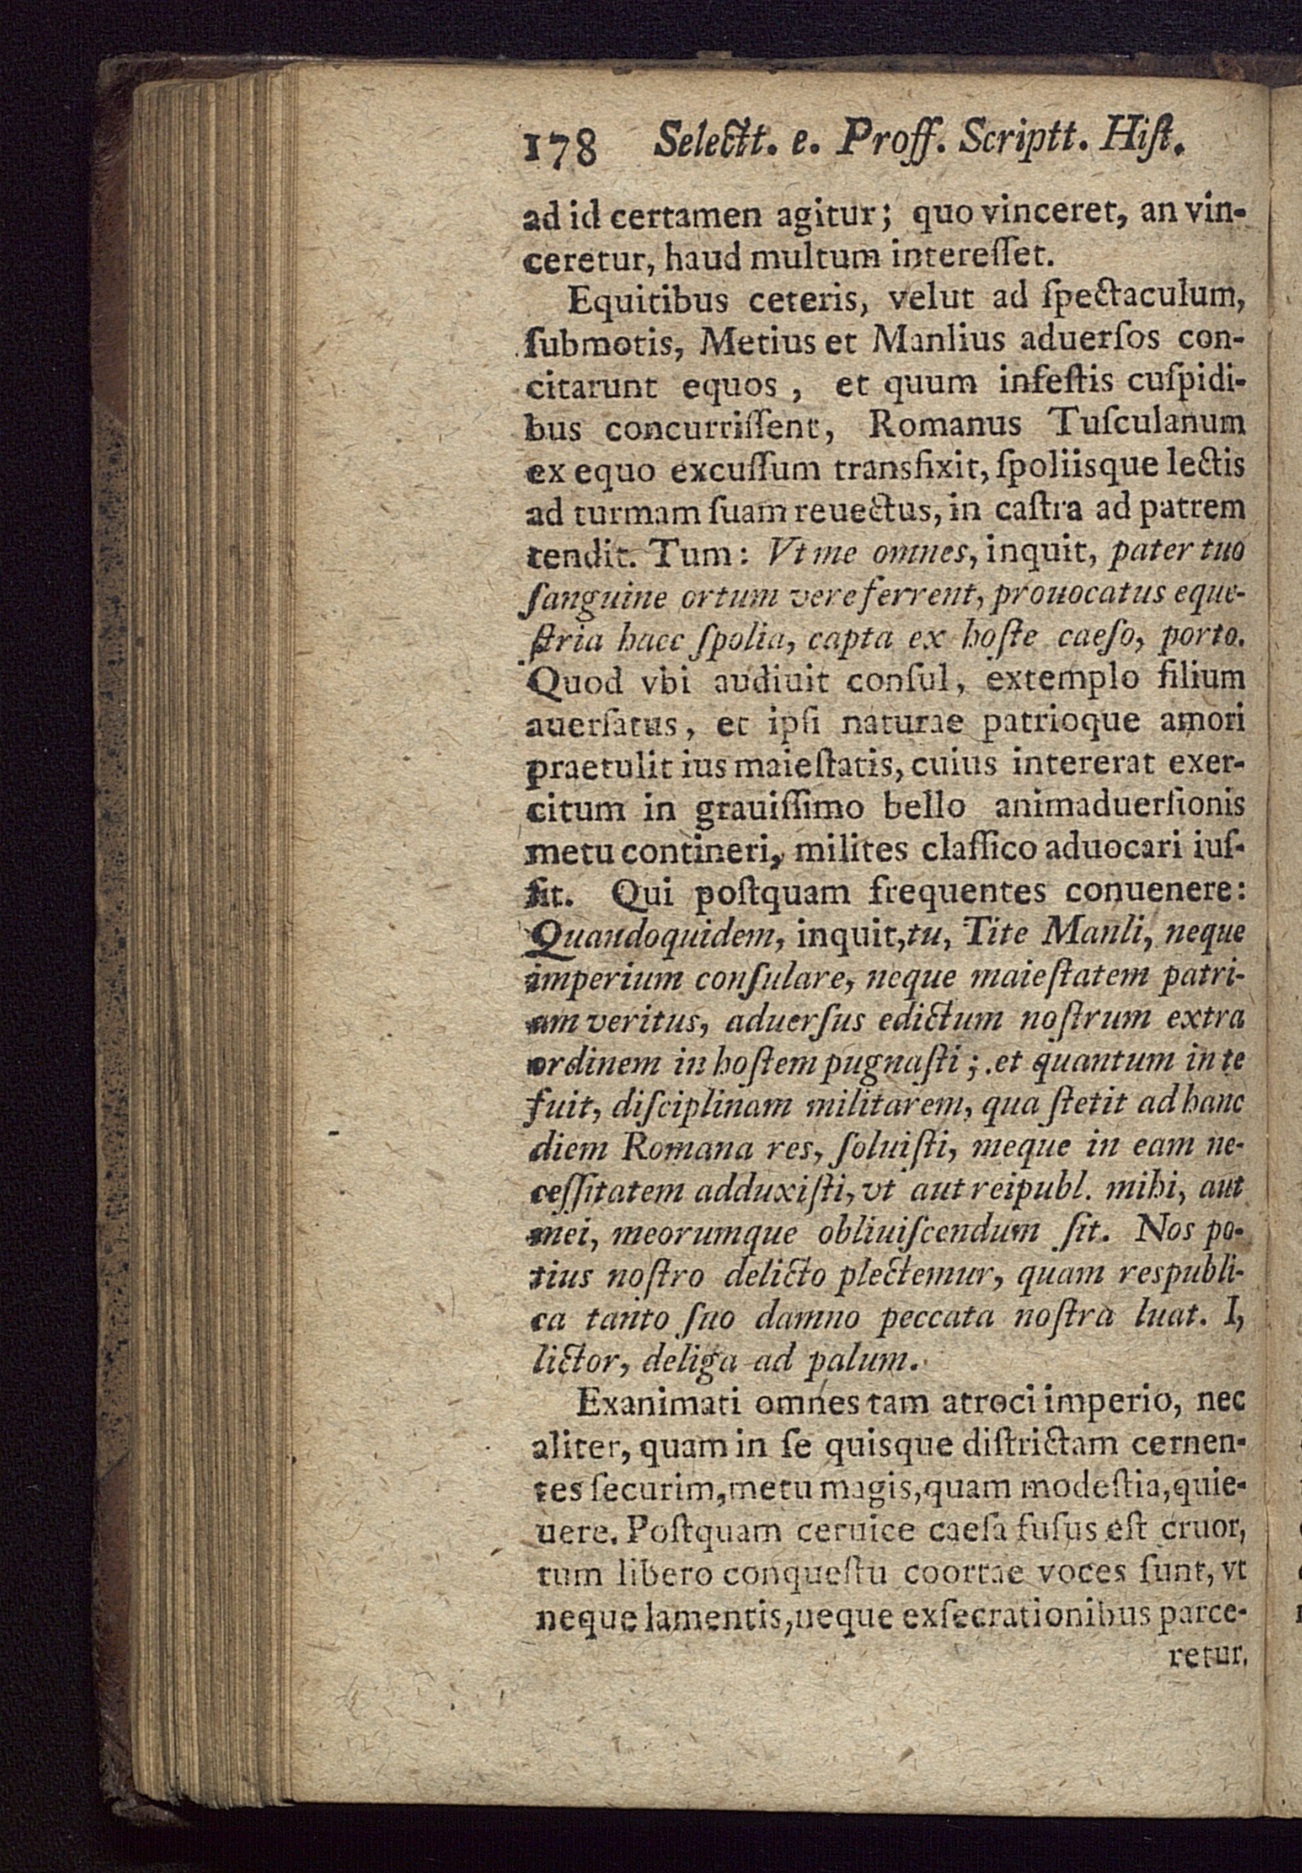 178 Selectt. e. Proff. Scriptt. Hiſt.
ad id certamen agitur; quo vinceret, an vin-
ceretur, haud multum intereſſet.
Equitibus ceteris, velut ad ſpectaculum,
ſubmotis, Metius et Manlius aduerſos con-
citarunt equos, et quum infeſtis cuſpidi-
bus concurriſſent, Romanus Tuſculanum
ex equo excuſſum transfixit, ſpoliisque lectis
ad turmam ſuam reuectus, in caſtra ad patrem
tendit. Tum: Vt me omnes, inquit, pater tuo
ſanguine ortum vere ferrent, prouocatus eque-
ſtria haec ſpolia, capta ex hoſte caeſo, porto.
Quod vbi audiuit conſul, extemplo filium
auerſatus, et ipſi naturae patrioque amori
praetulit ius maieſtatis, cuius intererat exer-
citum in grauiſſimo bello animaduerſionis
metu contineri, milites claſſico aduocari iuſ-
ſit. Qui poſtquam frequentes conuenere:
Quandoquidem, inquit, tu, Tite Manli, neque
imperium conſulare, neque maieſtatem patri-
am veritus, aduerſus edictum noſtrum extra
ordinem in hoſtem pugnaſti; et quantum in te
fuit, diſciplinam militarem, qua ſtetit ad hanc
diem Romana res, ſoluiſti, meque in eam ne-
ceſſitatem adduxiſti, vt aut reipubl. mihi, aut
mei, meorumque obliuiſcendum ſit. Nos po-
tius noſtro delicto plectemur, quam respubli-
ca tanto ſuo damno peccata noſtra luat. I,
lictor, deliga ad palum.
Exanimati omnes tam atroci imperio, nec
aliter, quam in ſe quisque diſtrictam cernen-
tes ſecurim, metu magis, quam modeſtia, quie-
uere. Poſtquam ceruice caeſa fuſus eſt cruor,
tum libero conqueſtu coortae voces ſunt, vt
neque lamentis, neque exſecrationibus parce-
retur.